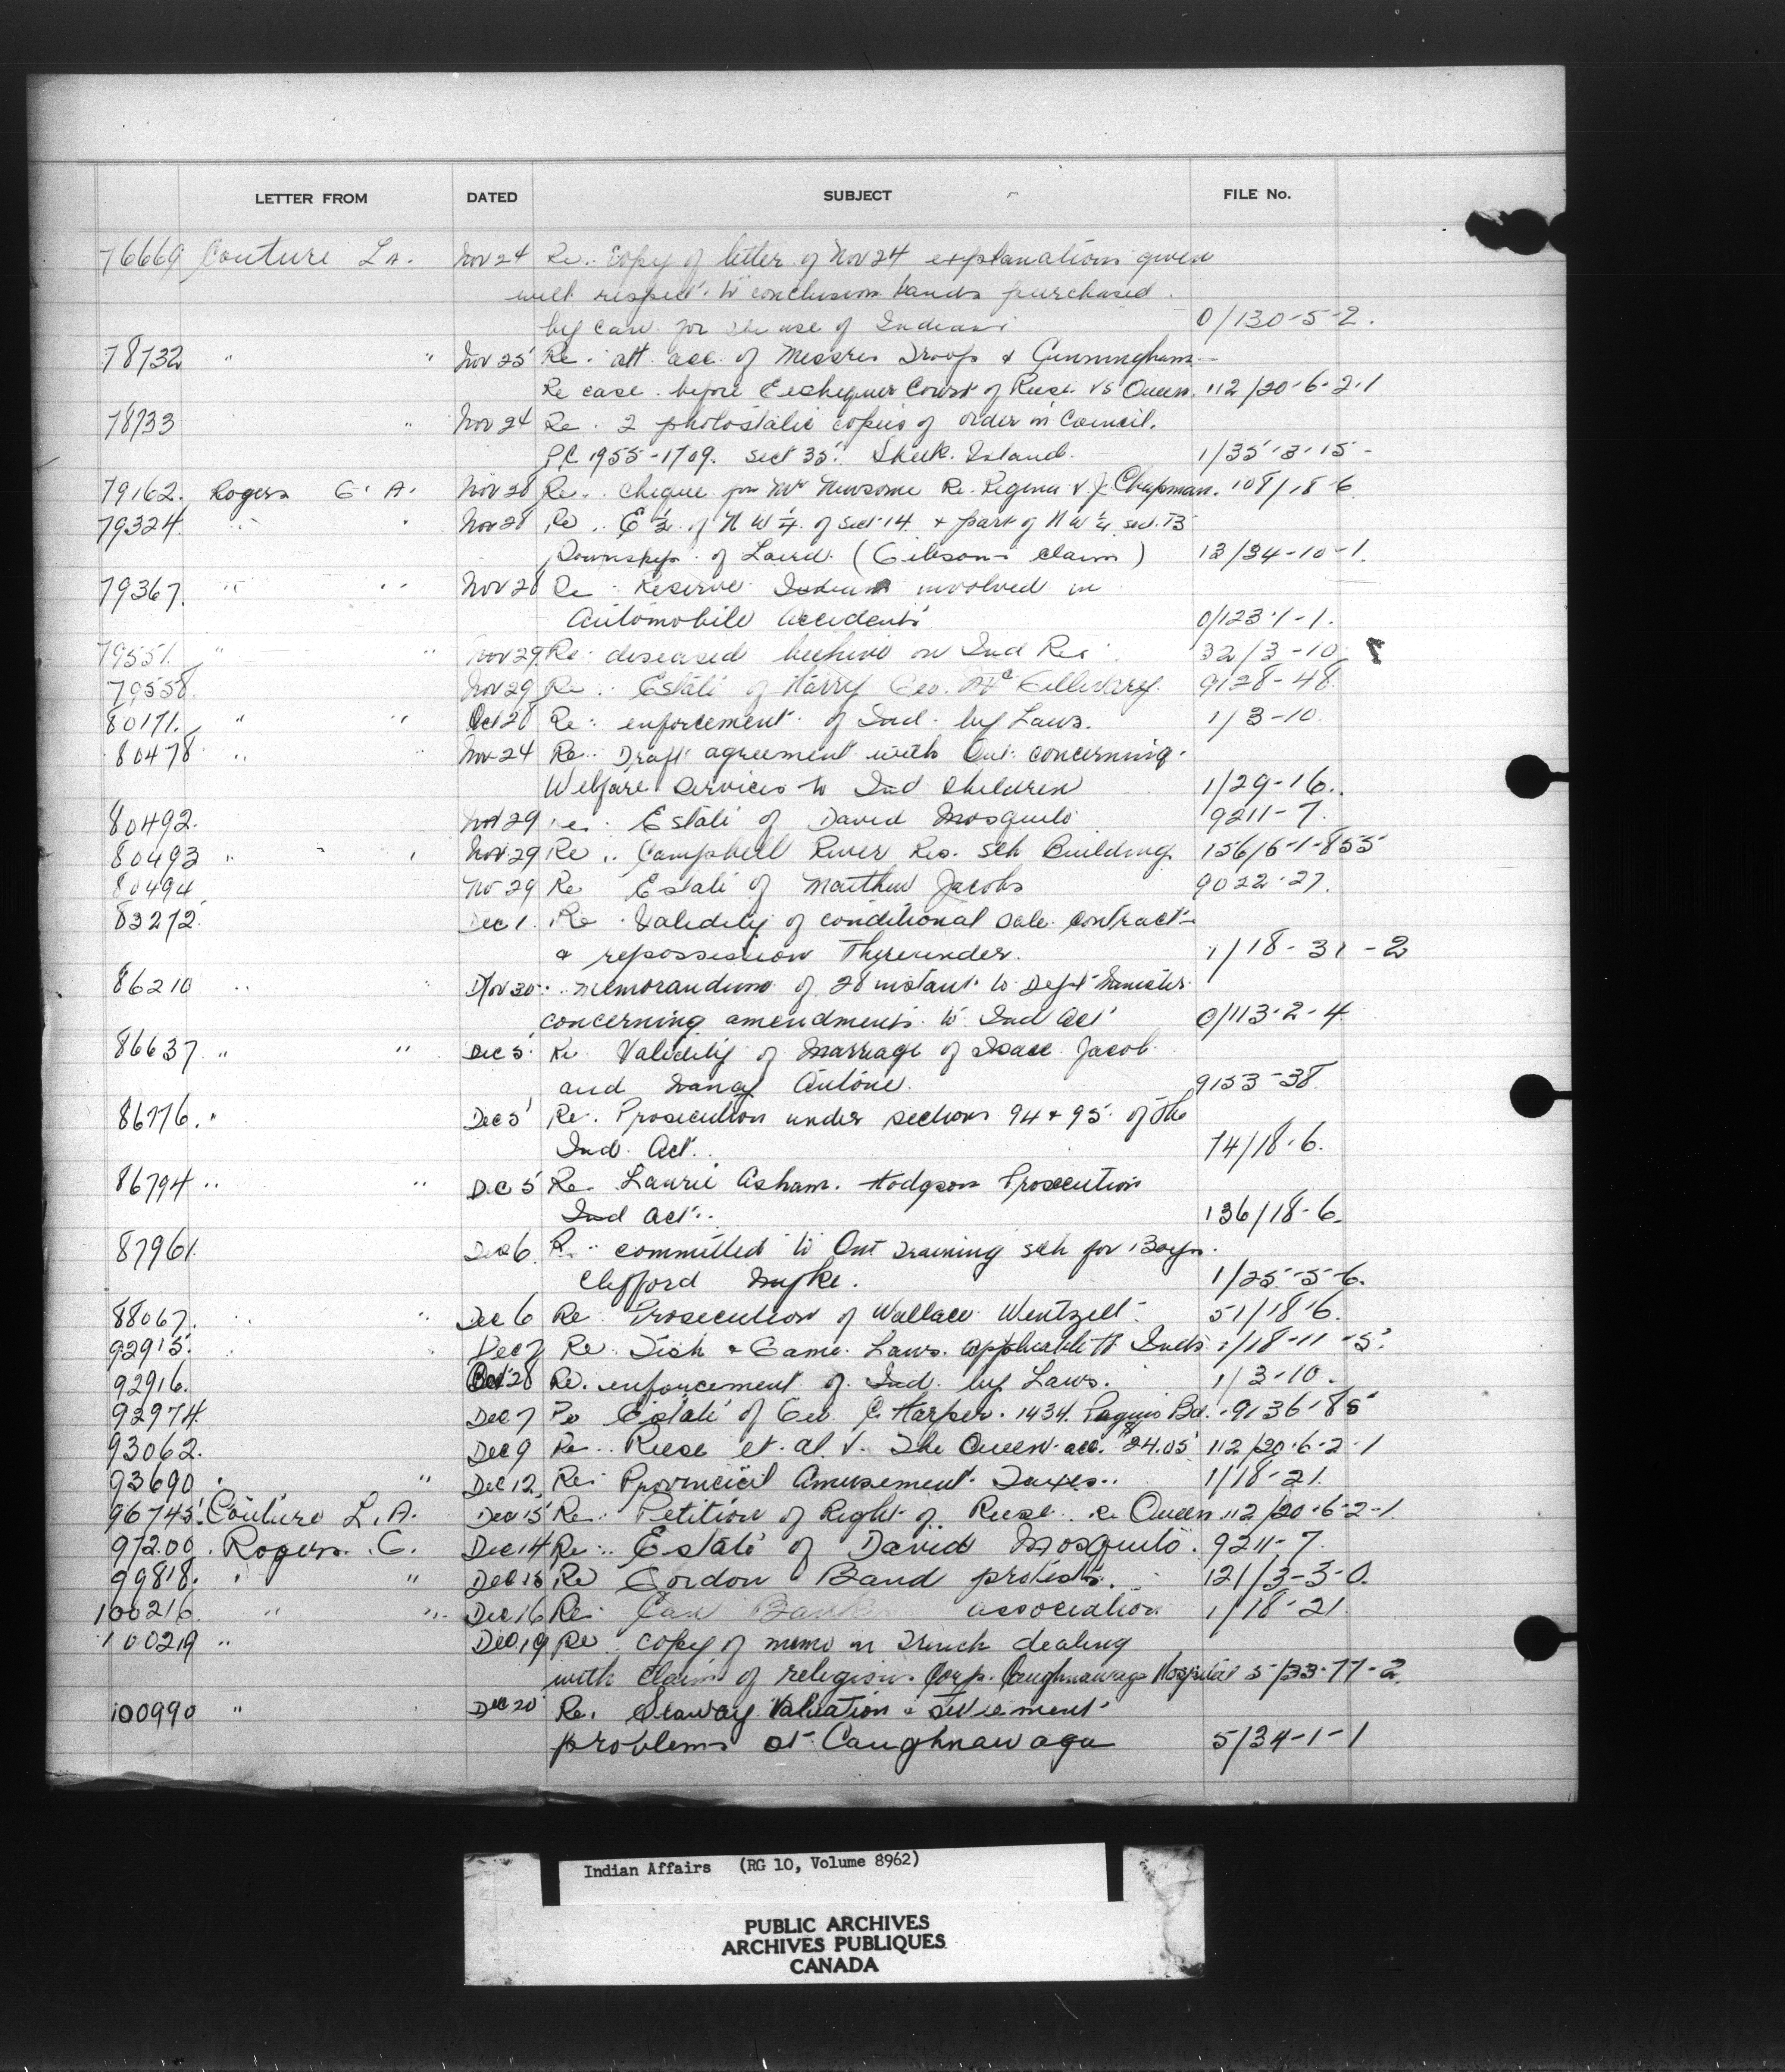 LETTER FROM DATED SUBJECT FILE No.
76669 Couture L A. Nov 24 Re. Copy of letter of Nov 24 explanations given
with respect to conclusion lands purchased
by Can for the use of Indians 0/130-5-2.
78732 " " Nov 25 Re. att. acc. of Messrs Troop & Cunningham
Re case before Exchequer Court of Reese vs Queen. 112/20-6-2-1
78733 " Nov 24 Re. 2 photostatic copies of order in Council.
P.C 1955-1709. sect 35. Sheek Island. 1/35-3-15-
79162. Rogers G. A. Nov 28 Re. cheque for Mr Newsome Re. Regina v. J. Chapman. 108/18-6
79324. " " Nov 28 Re. E ½ of N W ¼ of sect 14 & part of N W ¼ sec. 13
Township of Laird. (Gibson claim) 13/34-10-1.
79367. " " Nov 28 Re Reserve Indians involved in
Automobile accidents 0/123-1-1.
79551. " " Nov 29 Re. diseased beehive on Ind Res 32/3-10.
79558. Nov 29 Re. Estate of Harry Geo. Mc Gillivary. 9128-48.
80171. " " Oct 28 Re: enforcement of Ind. by Laws. 1/3-10.
80478 " " Nov 24 Re. Draft agreement with Ont. concerning
Welfare services to Ind Children 1/29-16.
80492. Nov 29 re. Estate of David Mosquito 9211-7.
80493 " " Nov 29 Re. Campbell River Res. Sch Building 156/6-1-855
80494 No 29 Re Estate of Matthew Jacobs 9022-27.
83272. Dec 1. Re. Validity of conditional sale contract
& repossession Thereunder. 1/18-31-2
86210 " " Nov 30. memorandum of 28 instant to Dept Minister
concerning amendments to Ind Act 0/113-2-4
86637 " " Dec 5 Re Validity of Marriage of Isaac Jacob
and Nancy Antone. 9153-38.
86776. " Dec 5 Re. Prosecution under sections 94 & 95 of the
Ind. Act. 74/18-6.
86794 " " Dec 5 Re. Laurie Asham. Hodgson Prosecution
Ind Act. 136/18-6.
87961. Dec 6. R. committed to Ont Training sch for Boys.
Clifford 1/25-5-6.
88067. " " Dec 6 Re Prosecution of Wallace Wentzell 51/18-6.
92915. Dec 7 Re. Fish & Game Laws. applicable to Inds 1/18-11-5.
92916. Oct 28 Re. enforcement of Ind. by Laws. 1/3-10.
92974 Dec 7 Re Estate of Geo. C. Harper. 1434. Bd. 9136-85
93062. Dec 9 Re. Reese et. al v. The Queen acc. $24.05 112/20-6-2-1
93690 " " Dec 12. Re: Provincial Amusement Taxes. 1/18-21.
96745. Couture L. A. Dec 15 Re. Petition of Right of Reese Queen 112/20-6-2-1.
97200. Rogers. G. Dec 14 Re. Estate of David Mosquito. 9211-7.
99818. " " Dec 15 Re Gordon Band protests. 121/3-3-0.
100216. " " Dec 16 Re: Can Bank association 1/18-21.
100219 " Dec 19 Re. copy of memo in French dealing
with claim of religious Corp. Caughnawaga Hospital 5/33-77-2
100990 " Dec 20 Re. Seaway Valuation & settlement
problems at Caughnawaga 5/34-1-1
Indian Affairs (RG 10, Volume 8962)
PUBLIC ARCHIVES
ARCHIVES PUBLIQUES
CANADA